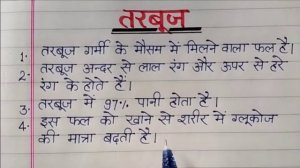 तरबूज
1. तरबूज गर्मी के मौसम में मिलने वाला फल है।
2. तरबूज अन्दर से लाल रंग और ऊपर से हरे
रंग के होते हैं।
3. तरबूज में 97% पानी होता है।
4. इस फल को खाने से शरीर में ग्लूकोज
की मात्रा बढ़ती है।